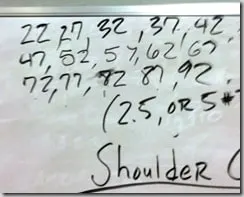 22, 27, 32, 37, 42,
47, 52, 57, 62, 67
72, 77, 82 87, 92.
(2.5, OR 5#
Shoulder